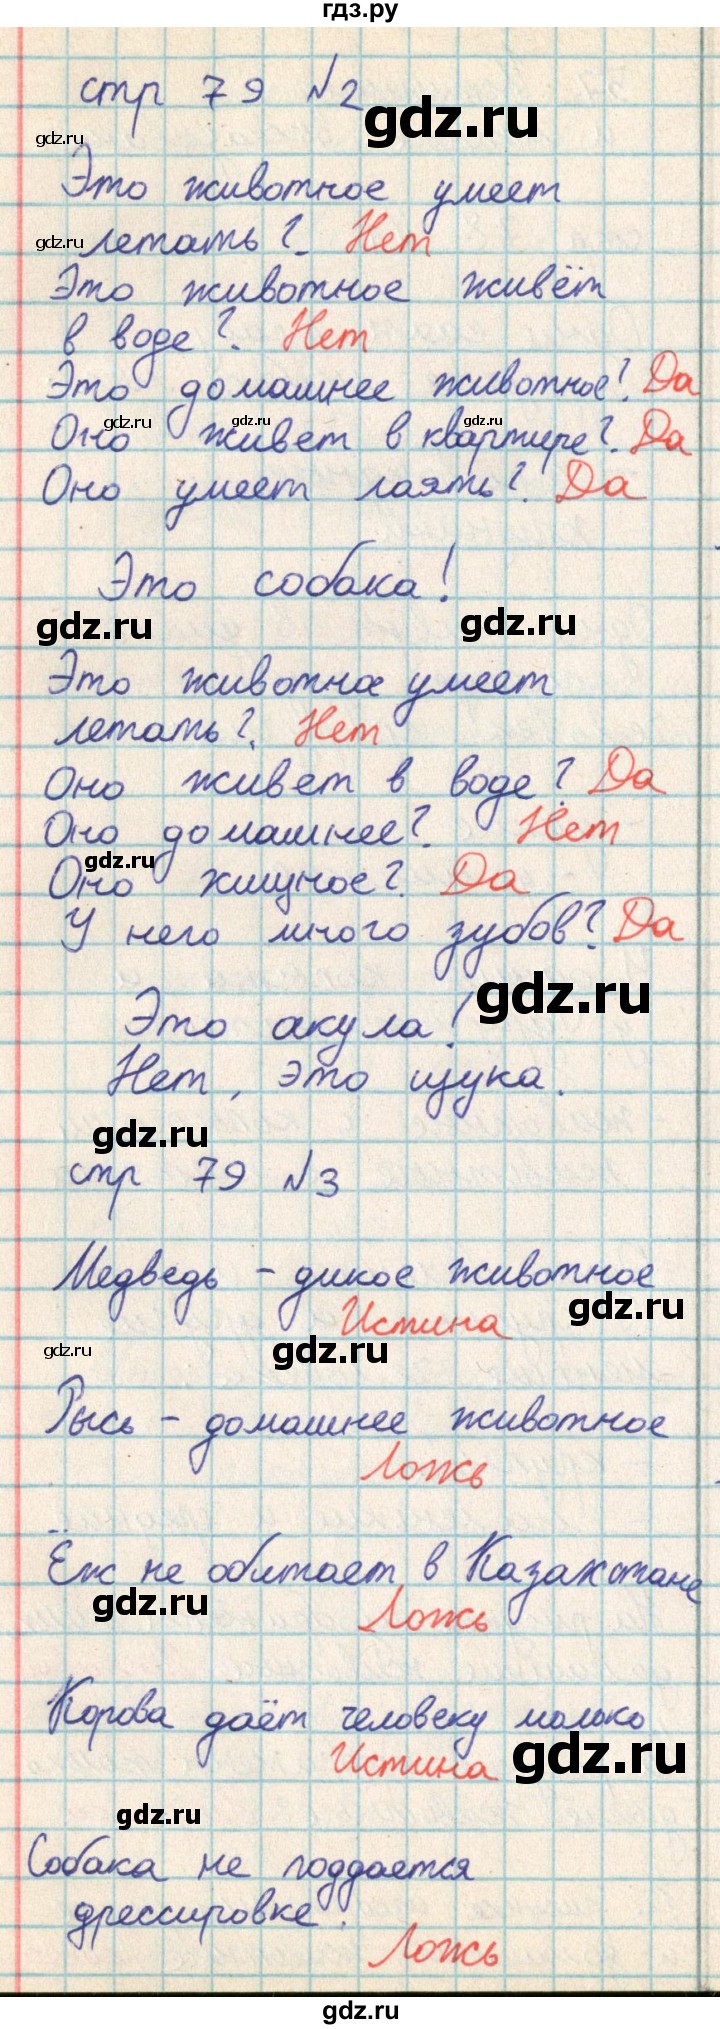 гдз.ру
стр 79 №2
gdz.ru
gdz.ru
Это животное умеет
gdz.ru
летать? Нет
Это животное живёт
в воде? Нет
Это домашнее животное? Да
gdz.ru gdz.ru gdz.ru
Оно живет в квартире? Да
Оно умеет лаять? Да
Это собака!
gdz.ru gdz.ru
Это животное умеет
летать? Нет
Оно живет в воде? Да
Оно домашнее? Нет
gdz.ru
Оно хищное? Да
У него много зубов? Да
gdz.ru
Это акула!
Нет, это щука.
gdz.ru
стр 79 №3
Медведь - дикое животное
gdz.ru
Истина
gdz.ru gdz.ru
Рысь - домашнее животное
Ложь
Ёж не обитает в Казахстане
gdz.ru
Ложь
Корова даёт человеку молоко
Истина
gdz.ru
gdz.ru
Собака не поддается
дрессировке.
Ложь
gdz.ru